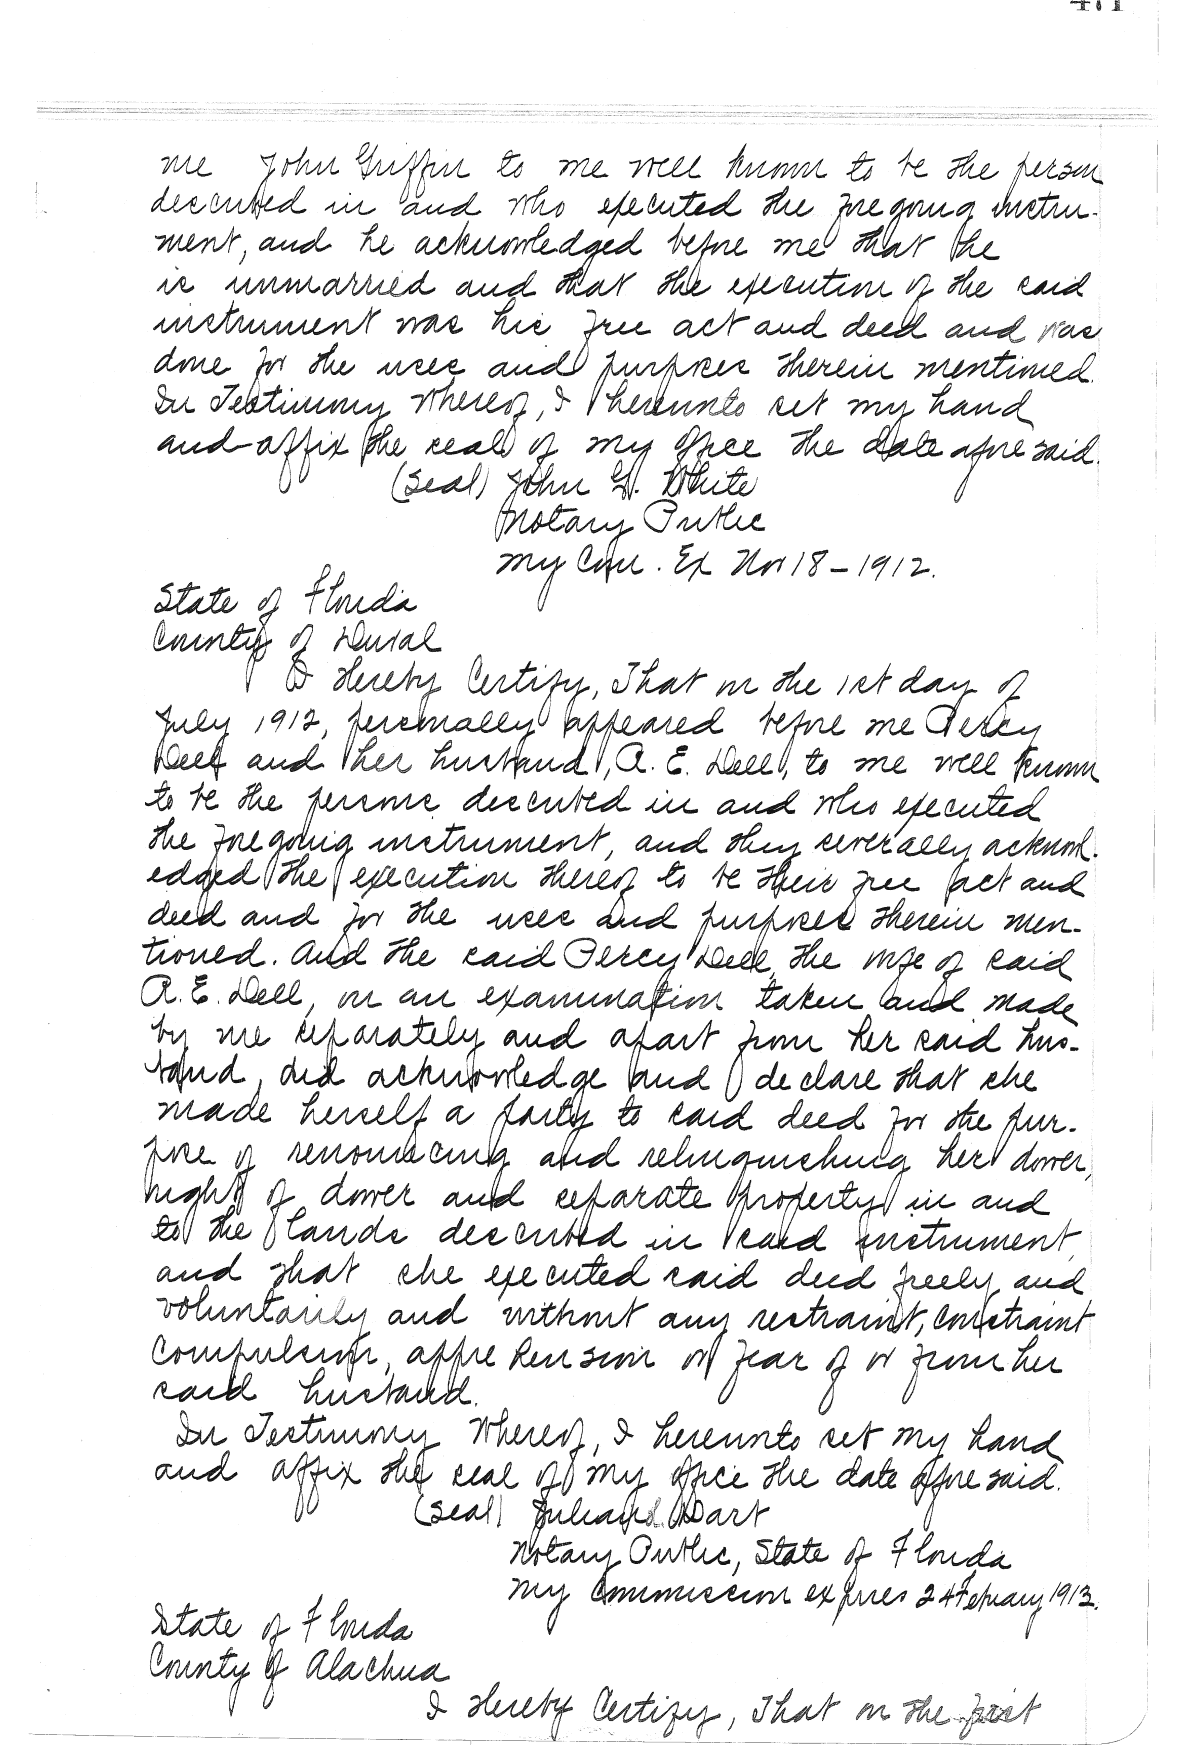 471
me John Griffin to me well known to be the person
described in and who executed the foregoing instru-
ment, and he acknowledged before me that he
is unmarried and that the execution of the said
instrument was his free act and deed and was
done for the uses and purposes therein mentioned.
In Testimony Whereof, I hereunto set my hand
and affix the seal of my office the date aforesaid.
(Seal) John G. White
Notary Public
My Com. Ex Nov 18 - 1912.
State of Florida
County of Duval
I Hereby Certify, That on the 1st day of
July 1912, personally appeared before me Percy
Dell and her husband, A. E. Dell, to me well known
to be the persons described in and who executed
the foregoing instrument, and they severally acknowl-
edged the execution thereof to be their free act and
deed and for the uses and purposes therein men-
tioned. And the said Percy Dell, the wife of said
A. E. Dell, on an examination taken and made
by me separately and apart from her said hus-
band, did acknowledge and declare that she
made herself a party to said deed for the pur-
pose of renouncing and relinquishing her dower,
right of dower and separate property in and
to the lands described in said instrument,
and that she executed said deed freely and
voluntarily and without any restraint, constraint
compulsion, apprehension or fear of or from her
said husband.
In Testimony Whereof, I hereunto set my hand
and affix the seal of my office the date aforesaid.
(Seal) Dart
Notary Public, State of Florida
My Commission expires 24 February 1913.
State of Florida
County of Alachua
I Hereby Certify, That on the first